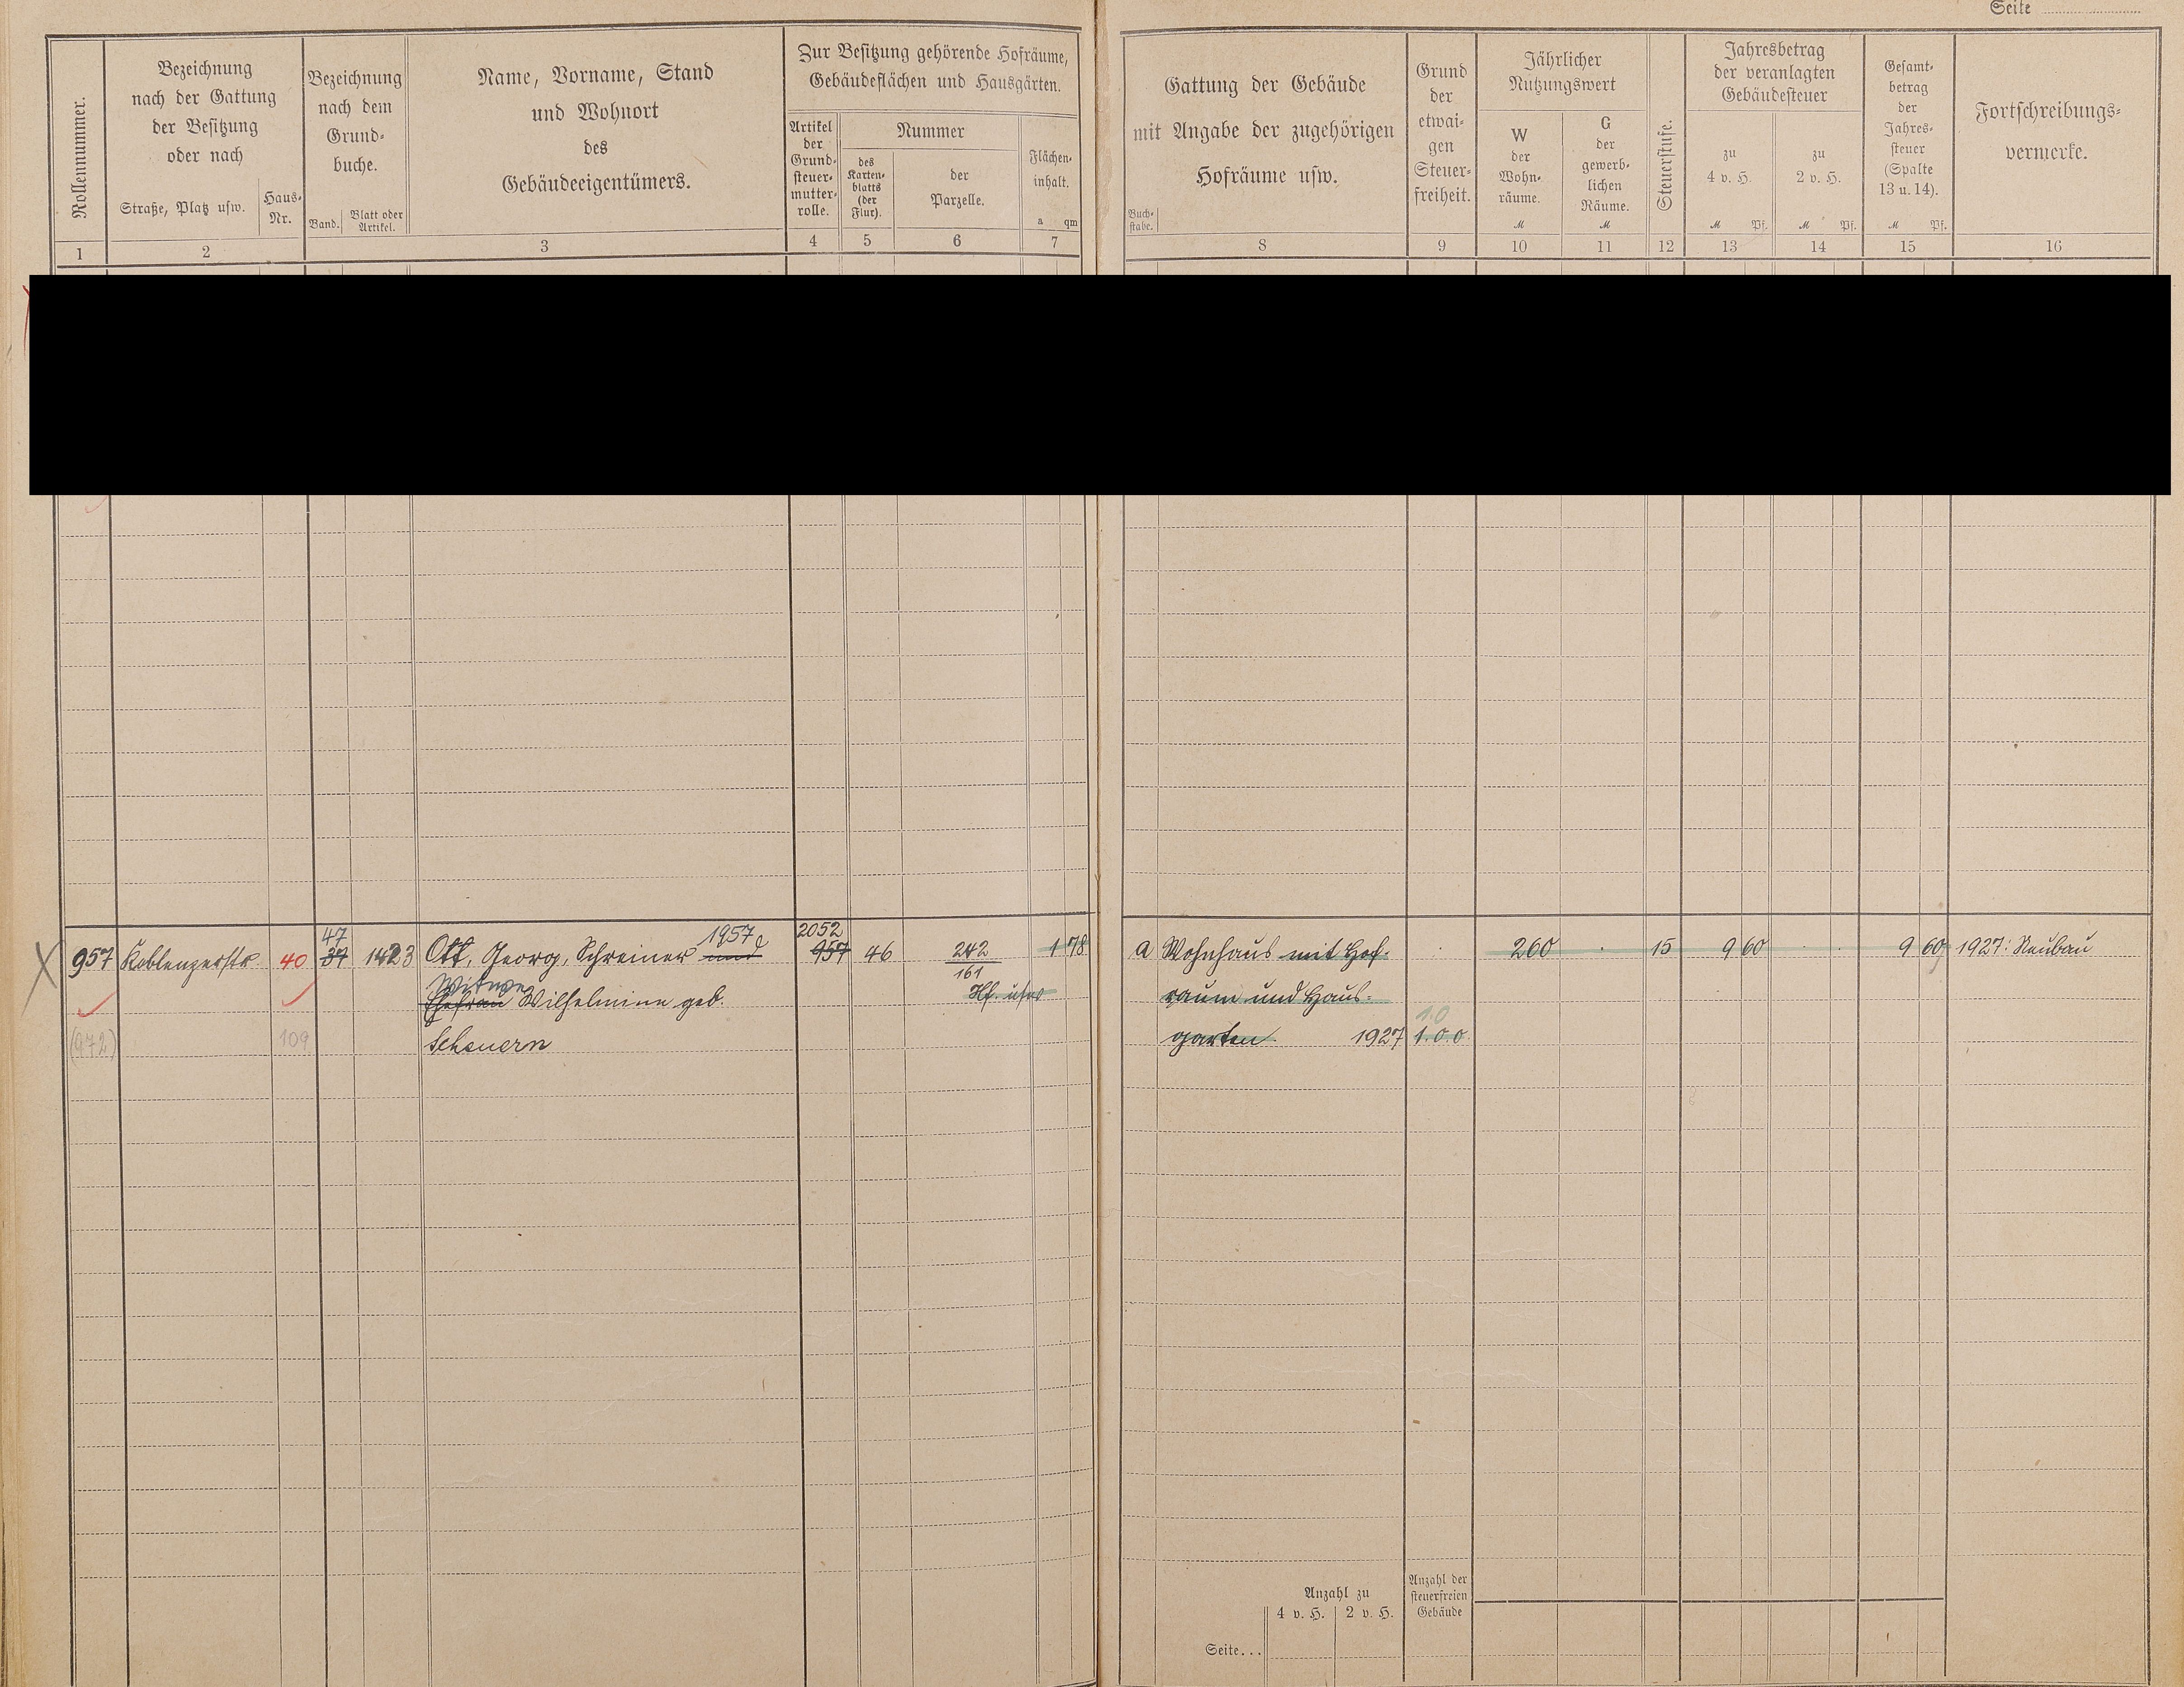 Seite
Rollennummer.
Bezeichnung
nach der Gattung
der Besitzung
oder nach
Straße, Platz usw.
Haus-
Nr.
Bezeichnung
nach dem
Grund-
buche.
Band.
Blatt oder
Artikel.
Name, Vorname, Stand
und Wohnort
des
Gebäudeeigentümers.
Zur Besitzung gehörende Hofräume,
Gebäudeflächen und Hausgärten.
Artikel
der
Grund-
steuer-
mutter-
rolle.
Nummer
des
Karten-
blatts
(der
Flur).
der
Parzelle.
Flächen-
inhalt.
a qm
1 2 3 4 5 6 7
Gattung der Gebäude
mit Angabe der zugehörigen
Hofräume usw.
Buch-
stabe.
Grund
der
etwai-
gen
Steuer-
freiheit.
Jährlicher
Nutzungswert
W
der
Wohn-
räume.
M
G
der
gewerb-
lichen
Räume.
M
Steuerstufe.
Jahresbetrag
der veranlagten
Gebäudesteuer
zu
4 v. H.
M Pf.
zu
2 v. H.
M Pf.
Gesamt-
betrag
der
Jahres-
steuer
(Spalte
13 u. 14).
M Pf.
Fortschreibungs-
vermerke.
8 9 10 11 12 13 14 15 16
47 1957 2052
957 Koblenzerstr. 40 37 1423 Ott, Georg, Schreiner und 957 46 242 1 78
161
Witwe
Ehefrau Wilhelmine geb. Hf. usw
(972) 109 Scheuern
a Wohnhaus mit Hof- 260 15 9 60 9 60 1927: Neubau
raum und Haus-
1.0
garten 1927 1.0.0
Anzahl zu
4 v. H. 2 v. H.
Anzahl der
steuerfreien
Gebäude
Seite...